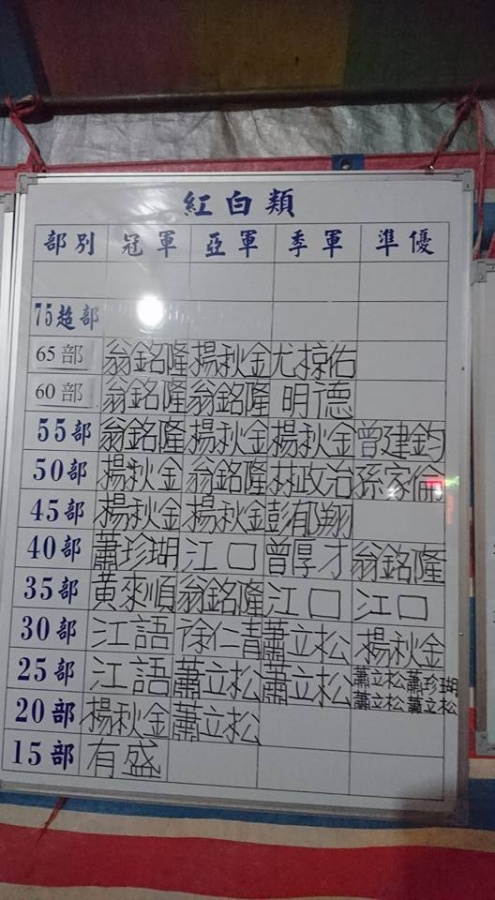 紅白類
部別 冠軍 亞軍 季軍 準優
75超部
65部 翁銘隆 楊秋金 尤椋佑
60部 翁銘隆 翁銘隆 明德
55部 翁銘隆 楊秋金 楊秋金 曾建鈞
50部 楊秋金 翁銘隆 林政治 孫家倫
45部 楊秋金 楊秋金 彭郁翔
40部 蕭珍瑚 江口 曾厚才 翁銘隆
35部 黃來順 翁銘隆 江口 江口
30部 江語 徐仁青 蕭立松 楊秋金
25部 江語 蕭立松 蕭立松 蕭立松 蕭珍瑚
蕭立松 蕭立松
20部 楊秋金 蕭立松
15部 有盛